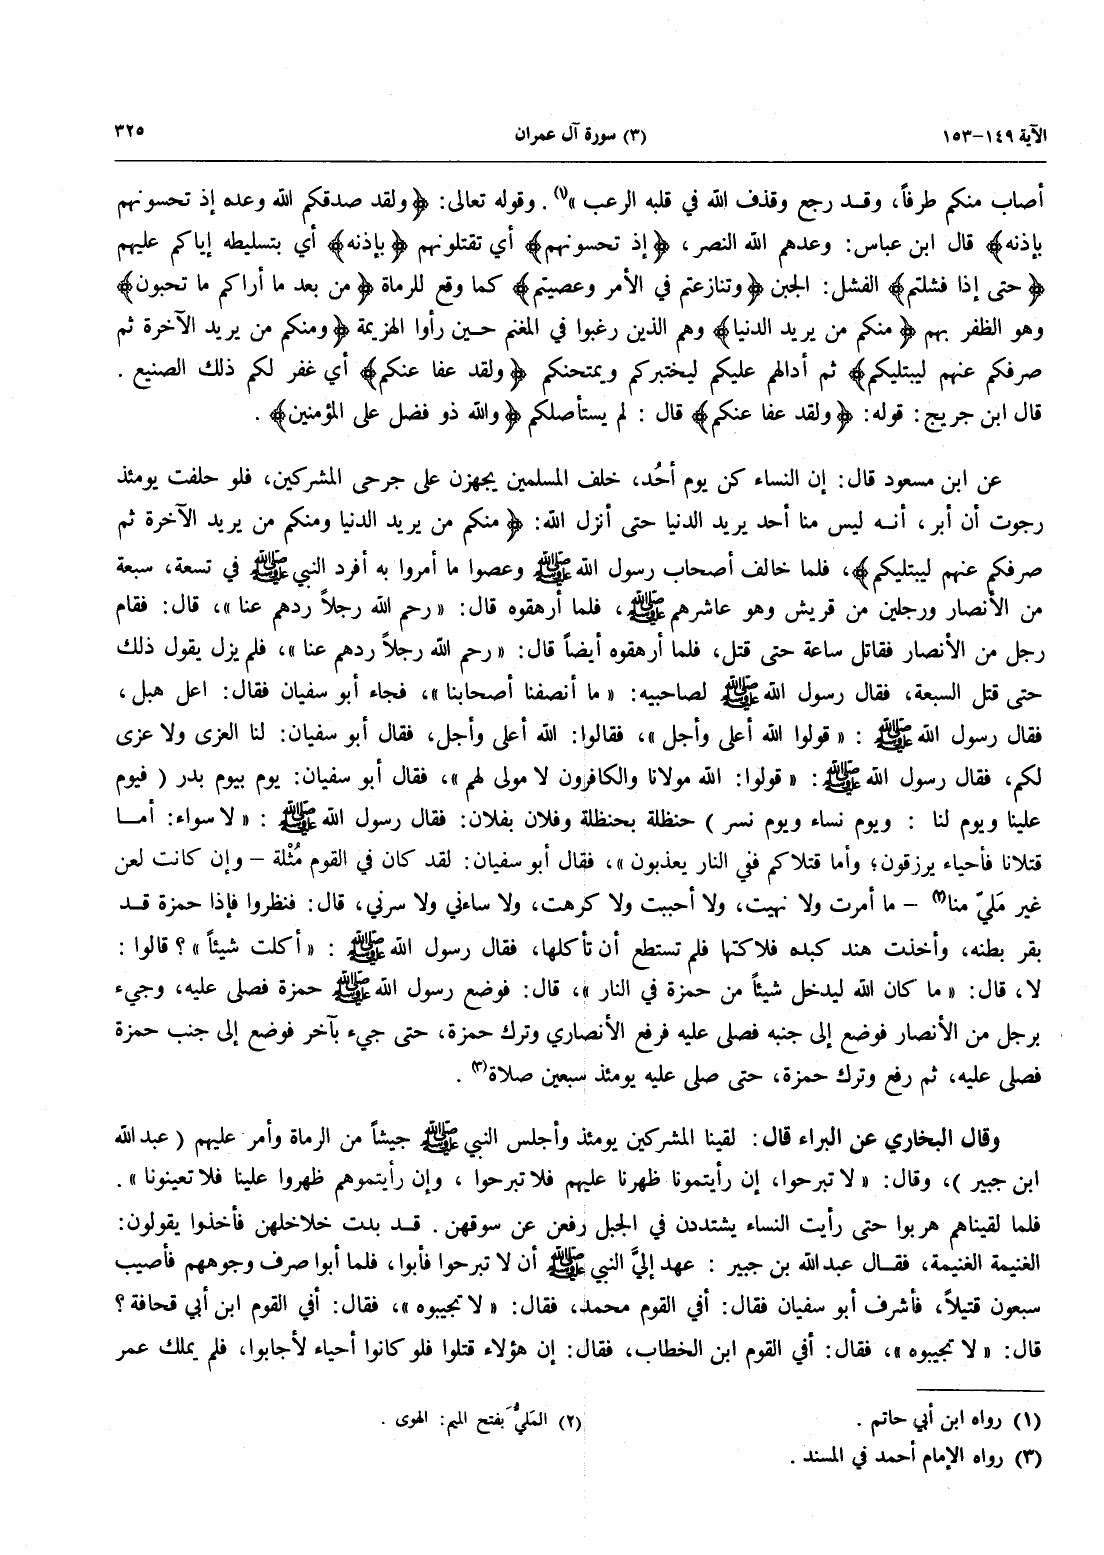 الآية ١٤٩-١٥٣ (٣) سورة آل عمران ٣٢٥
أصاب منكم طرفاً، وقـد رجع وقذف الله في قلبه الرعب »(١). وقوله تعالى: ﴿ولقد صدقكم الله وعده إذ تحسونهم
بإذنه﴾ قال ابن عباس: وعدهم الله النصر، ﴿إذ تحسونهم﴾ أي تقتلونهم ﴿بإذنه﴾ أي بتسليطه إياكم عليهم
﴿حتى إذا فشلتم﴾ الفشل: الجبن ﴿وتنازعتم في الأمر وعصيتم﴾ كما وقع للرماة ﴿من بعد ما أراكم ما تحبون﴾
وهو الظفر بهم ﴿منكم من يريد الدنيا﴾ وهم الذين رغبوا في المغنم حـين رأوا الهزيمة ﴿ومنكم من يريد الآخرة ثم
صرفكم عنهم ليبتليكم﴾ ثم أدالهم عليكم ليختبركم ويمتحنكم ﴿ولقد عفا عنكم﴾ أي غفر لكم ذلك الصنيع .
قال ابن جريج: قوله: ﴿ولقد عفا عنكم﴾ قال : لم يستأصلكم ﴿والله ذو فضل على المؤمنين﴾ .
عن ابن مسعود قال: إن النساء كن يوم أُحُد، خلف المسلمين يجهزن على جرحى المشركين، فلو حلفت يومئذ
رجوت أن أبر، أنـه ليس منا أحد يريد الدنيا حتى أنزل الله: ﴿منكم من يريد الدنيا ومنكم من يريد الآخرة ثم
صرفكم عنهم ليبتليكم﴾، فلما خالف أصحاب رسول الله ﷺ وعصوا ما أمروا به أفرد النبي ﷺ في تسعة، سبعة
من الأنصار ورجلين من قريش وهو عاشرهم ﷺ، فلما أرهقوه قال: « رحم الله رجلاً ردهم عنا »، قال: فقام
رجل من الأنصار فقاتل ساعة حتى قتل، فلما أرهقوه أيضاً قال: « رحم الله رجلاً ردهم عنا »، فلم يزل يقول ذلك
حتى قتل السبعة، فقال رسول الله ﷺ لصاحبيه: « ما أنصفنا أصحابنا »، فجاء أبو سفيان فقال: اعل هبل،
فقال رسول الله ﷺ : « قولوا الله أعلى وأجل »، فقالوا: الله أعلى وأجل، فقال أبو سفيان: لنا العزى ولا عزى
لكم، فقال رسول الله ﷺ: « قولوا: الله مولانا والكافرون لا مولى لهم »، فقال أبو سفيان: يوم بيوم بدر ( فيوم
علينا ويوم لنا : ويوم نساء ويوم نسر ) حنظلة بحنظلة وفلان بفلان: فقال رسول الله ﷺ : « لا سواء: أمـا
قتلانا فأحياء يرزقون؛ وأما قتلاكم ففي النار يعذبون »، فقال أبو سفيان: لقد كان في القوم مُثْلة – وإن كانت لعن
غير مَليّ منا(٢) – ما أمرت ولا نهيت، ولا أحببت ولا كرهت، ولا ساءني ولا سرني، قال: فنظروا فإذا حمزة قـد
بقر بطنه، وأخذت هند كبده فلاكتها فلم تستطع أن تأكلها، فقال رسول الله ﷺ : « أكلت شيئاً »؟ قالوا :
لا، قال: « ما كان الله ليدخل شيئاً من حمزة في النار »، قال: فوضع رسول الله ﷺ حمزة فصلى عليه، وجيء
برجل من الأنصار فوضع إلى جنبه فصلى عليه فرفع الأنصاري وترك حمزة، حتى جيء بآخر فوضع إلى جنب حمزة
فصلى عليه، ثم رفع وترك حمزة، حتى صلى عليه يومئذ سبعين صلاة(٣) .
وقال البخاري عن البراء قال: لقينا المشركين يومئذ وأجلس النبي ﷺ جيشاً من الرماة وأمر عليهم ( عبد الله
ابن جبير )، وقال: « لا تبرحوا، إن رأيتمونا ظهرنا عليهم فلا تبرحوا ، وإن رأيتموهم ظهروا علينا فلا تعينونا ».
فلما لقيناهم هربوا حتى رأيت النساء يشتددن في الجبل رفعن عن سوقهن . قـد بدت خلاخلهن فأخذوا يقولون:
الغنيمة الغنيمة، فقـال عبد الله بن جبير : عهد إليَّ النبي ﷺ أن لا تبرحوا فأبوا، فلما أبوا صرف وجوههم فأصيب
سبعون قتيلاً، فأشرف أبو سفيان فقال: أفي القوم محمد، فقال: « لا تجيبوه »، فقال: أفي القوم ابن أبي قحافة ؟
قال: « لا تجيبوه »، فقال: أفي القوم ابن الخطاب، فقال: إن هؤلاء قتلوا فلو كانوا أحياء لأجابوا، فلم يملك عمر
(١) رواه ابن أبي حاتم . (٢) المَليُّ بفتح الميم: الهوى .
(٣) رواه الإمام أحمد في المسند .